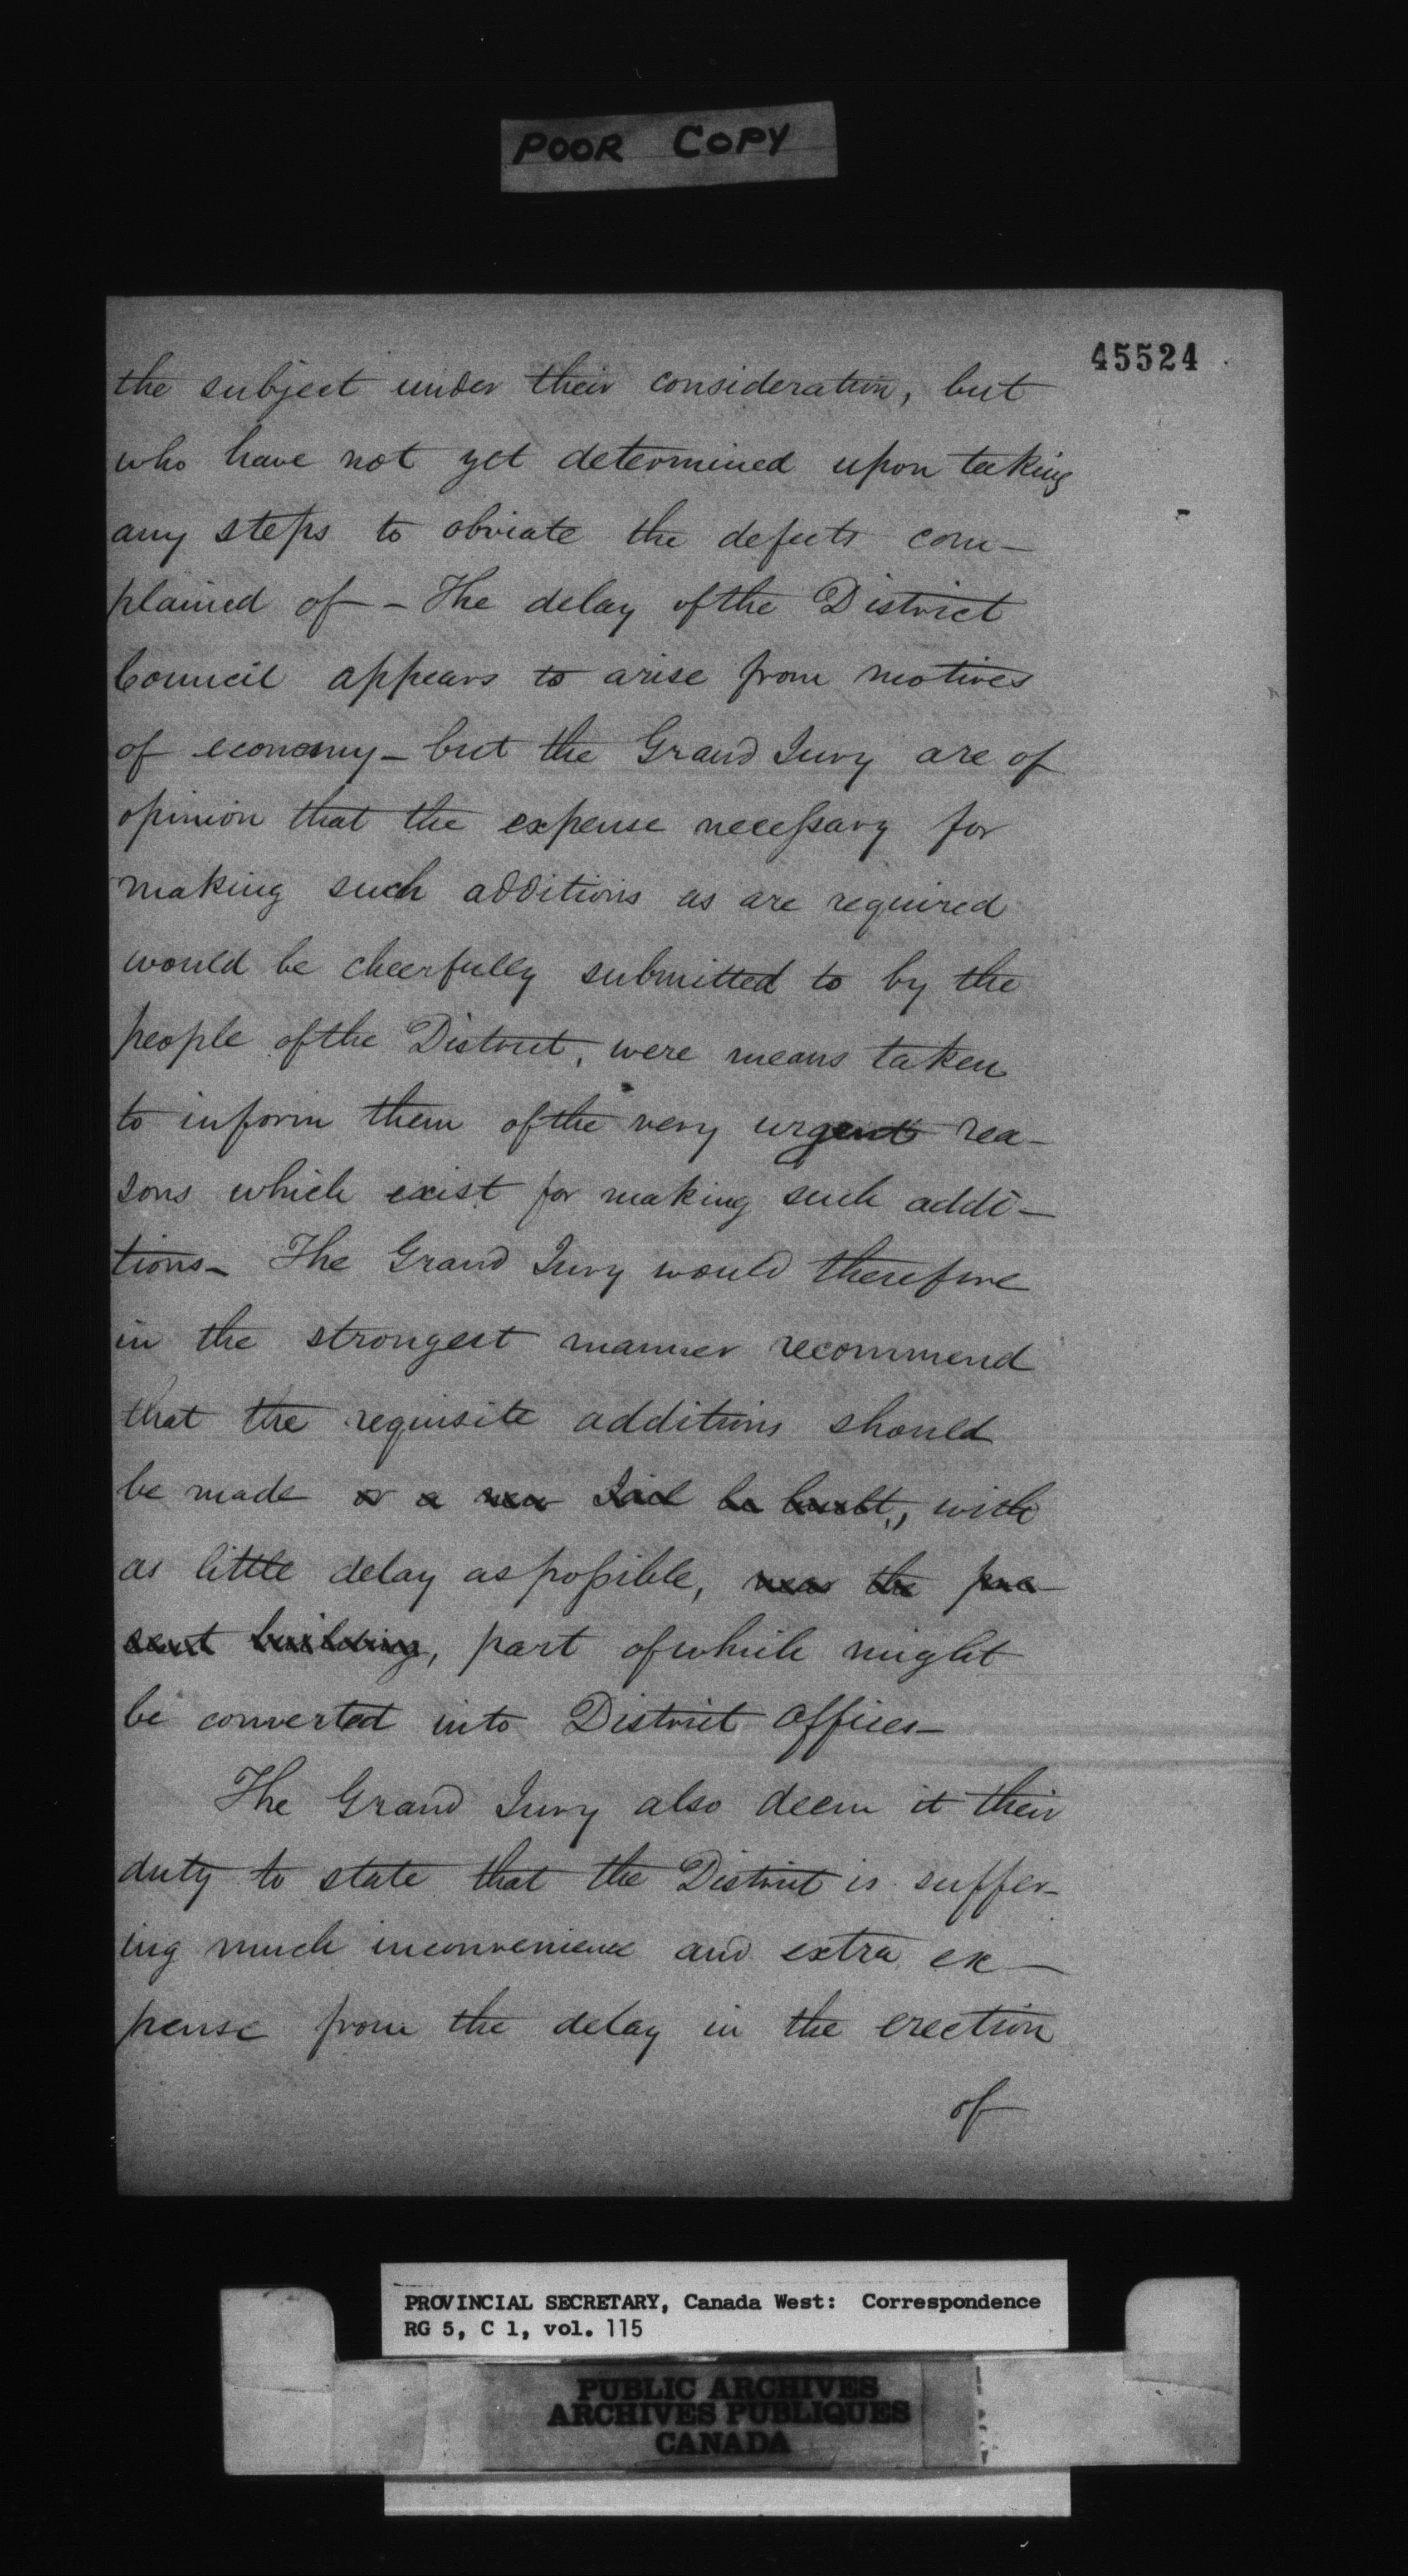 POOR COPY
45524
the subject under their consideration, but
who have not yet determined upon taking
any steps to obviate the defects com-
plained of - The delay of the District
Council appears to arise from motives
of economy - but the Grand Jury are of
opinion that the expense necessary for
making such additions as are required
would be cheerfully submitted to by the
people of the District, were means taken
to inform them of the very urgent rea-
sons which exist for making such addi-
tions - The Grand Jury would therefore
in the strongest manner recommend
that the requisite additions should
be made or a new Jail be built, with
as little delay as possible, near the pre-
sent building, part of which might
be converted into District Offices -
The Grand Jury also deem it their
duty to state that the District is suffer-
ing much inconvenience and extra ex-
pense from the delay in the erection
of
PROVINCIAL SECRETARY, Canada West: Correspondence
RG 5, C 1, vol. 115
PUBLIC ARCHIVES
ARCHIVES PUBLIQUES
CANADA